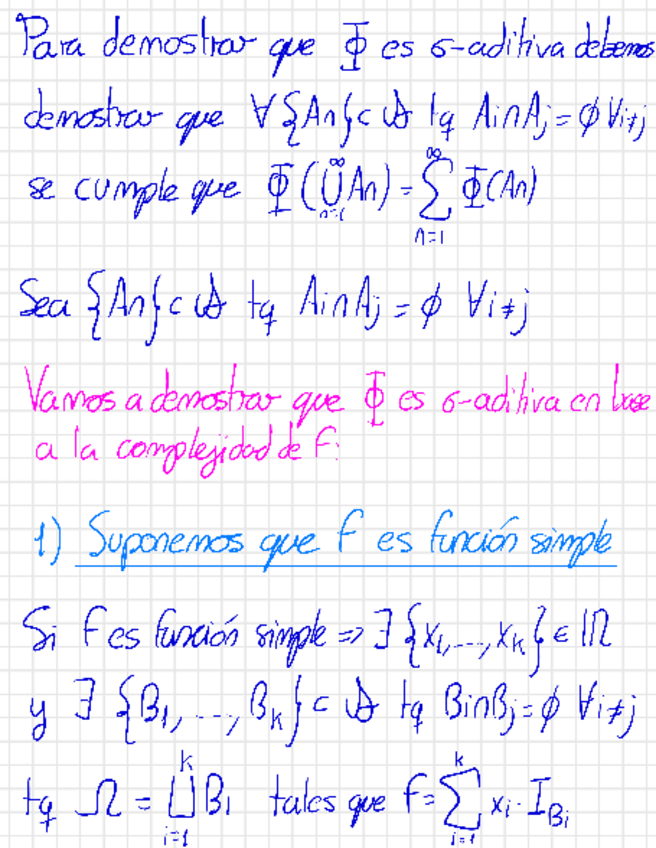 Para demostrar que Φ es σ-aditiva debemos
demostrar que ∀{An}⊂𝒜 tq Ai∩Aj=∅ ∀i≠j
se cumple que Φ(⋃_{n=1}^{∞} An) = ∑_{n=1}^{∞} Φ(An)
Sea {An}⊂𝒜 tq Ai∩Aj=∅ ∀i≠j
Vamos a demostrar que Φ es σ-aditiva en base
a la complejidad de f:
1) Suponemos que f es función simple
Si f es función simple => ∃ {x1,...,xk} ∈ ℝ
y ∃ {B1,...,Bk} ⊂ 𝒜 tq Bi∩Bj=∅ ∀i≠j
tq Ω = ⨆_{i=1}^{k} Bi tales que f=∑_{i=1}^{k} xi·I_{Bi}